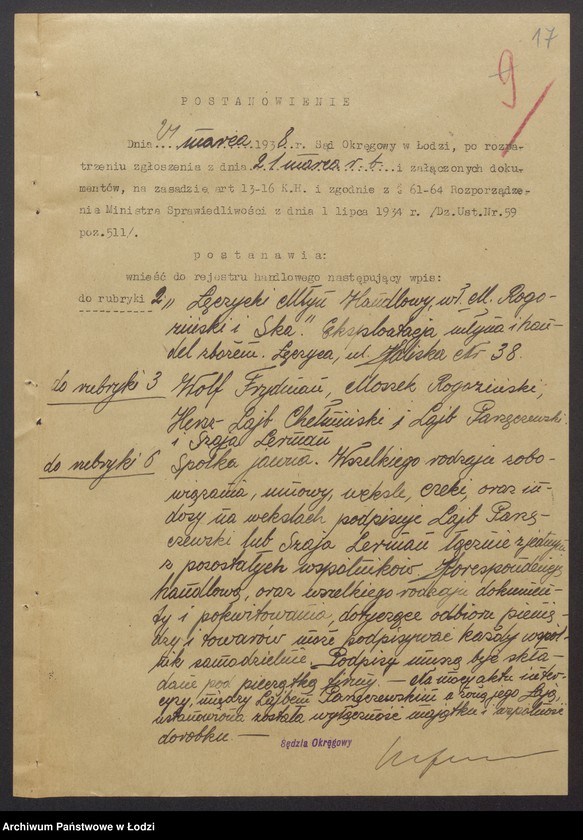 17
9
POSTANOWIENIE
Dnia marca 1938 r. Sąd Okręgowy w Łodzi, po rozpa-
trzeniu zgłoszenia z dnia 21 marca r. b. i załączonych doku-
mentów, na zasadzie art 13-16 K.H. i zgodnie z § 61-64 Rozporządze-
nia Ministra Sprawiedliwości z dnia 1 lipca 1934 r. /Dz.Ust.Nr.59
poz.511/.
postanawia:
wnieść do rejestru handlowego następujący wpis:
do rubryki 2 „Łęczycki Młyn Handlowy, wł. M. Rogo-
ziński i Ska." Eksploatacja młyna i han-
del zbożem. Łęczyca, ul. Kaliska Nr 38.
do rubryki 3 Wolf Frydman, Moszek Rogoziński,
Hersz-Lajb Chełmiński i Lajb Parzęczewski
i Szaja Lerman
do rubryki 6 Spółka jawna. Wszelkiego rodzaju zobo-
wiązania, umowy, weksle, czeki, oraz in-
dosy na wekslach podpisuje Lajb Parzę-
czewski lub Szaja Lerman łącznie z jednym
z pozostałych wspólników. Korespondencję
handlową, oraz wszelkiego rodzaju dokumen-
ty i pokwitowania, dotyczące odbioru pienię-
dzy i towarów może podpisywać każdy wspól-
nik samodzielnie. Podpisy muszą być skła-
dane pod pieczątką firmy. — Na mocy aktu inter-
cyzy, między Lajbem Parzęczewskim a żoną jego
ustanowiona została wyłączność majątku i wspólność
dorobku. —
Sędzia Okręgowy
Archiwum Państwowe w Łodzi